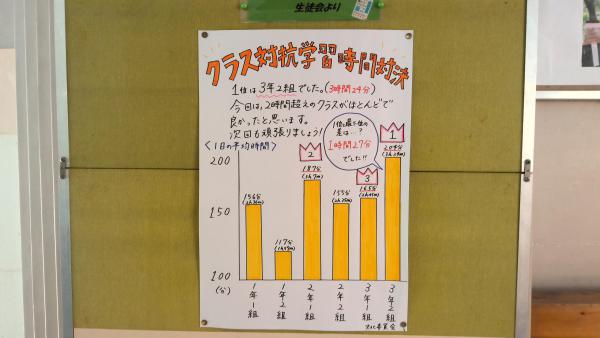 生徒会より
クラス対抗学習時間対決
1位は3年2組でした。(3時間24分)
今回は、2時間超えのクラスがほとんどで
良かったと思います。
次回も頑張りましょう!
<1日の平均時間>
1位と最下位の
差は…?
1時間27分
でした!!
200
150
100
(分)
156分
(2h36m)
117分
(1h57m)
2
187分
(3h7m)
155分
(2h35m)
3
165分
(2h45m)
1
204分
(3h24m)
1年1組
1年2組
2年1組
2年2組
3年1組
3年2組
文化委員会